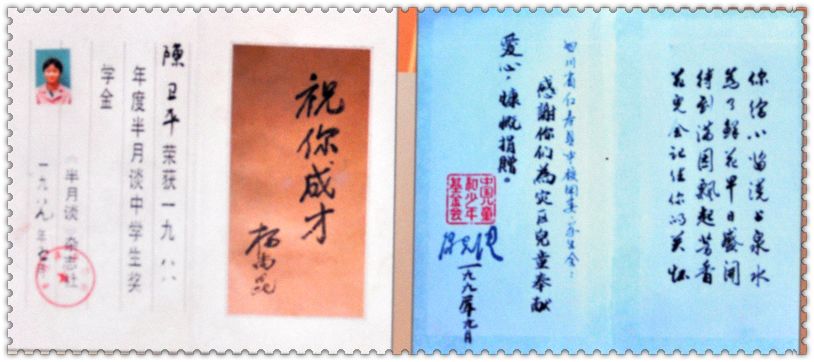 陳卫平荣获一九八八
年度半月谈中学生奖
学金
《半月谈》杂志社
一九八九年 月
祝你成才
杨尚昆
你给小苗浇上泉水
为了鲜花早日盛开
待到满园飘起芳香
花儿会记住你的关怀
四川省仁寿县中校团委、学生会：
感謝你們為灾区兒童奉献
愛心，慷慨捐贈。
中国儿童
和少年
基金会
一九九 年九月